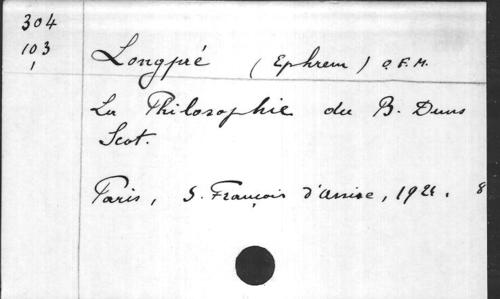 304
103
1
Longpré (Ephrem) O.F.M.
La Philosophie du B. Duns
Scot.
Paris, S. François d'Assise, 1924. 8